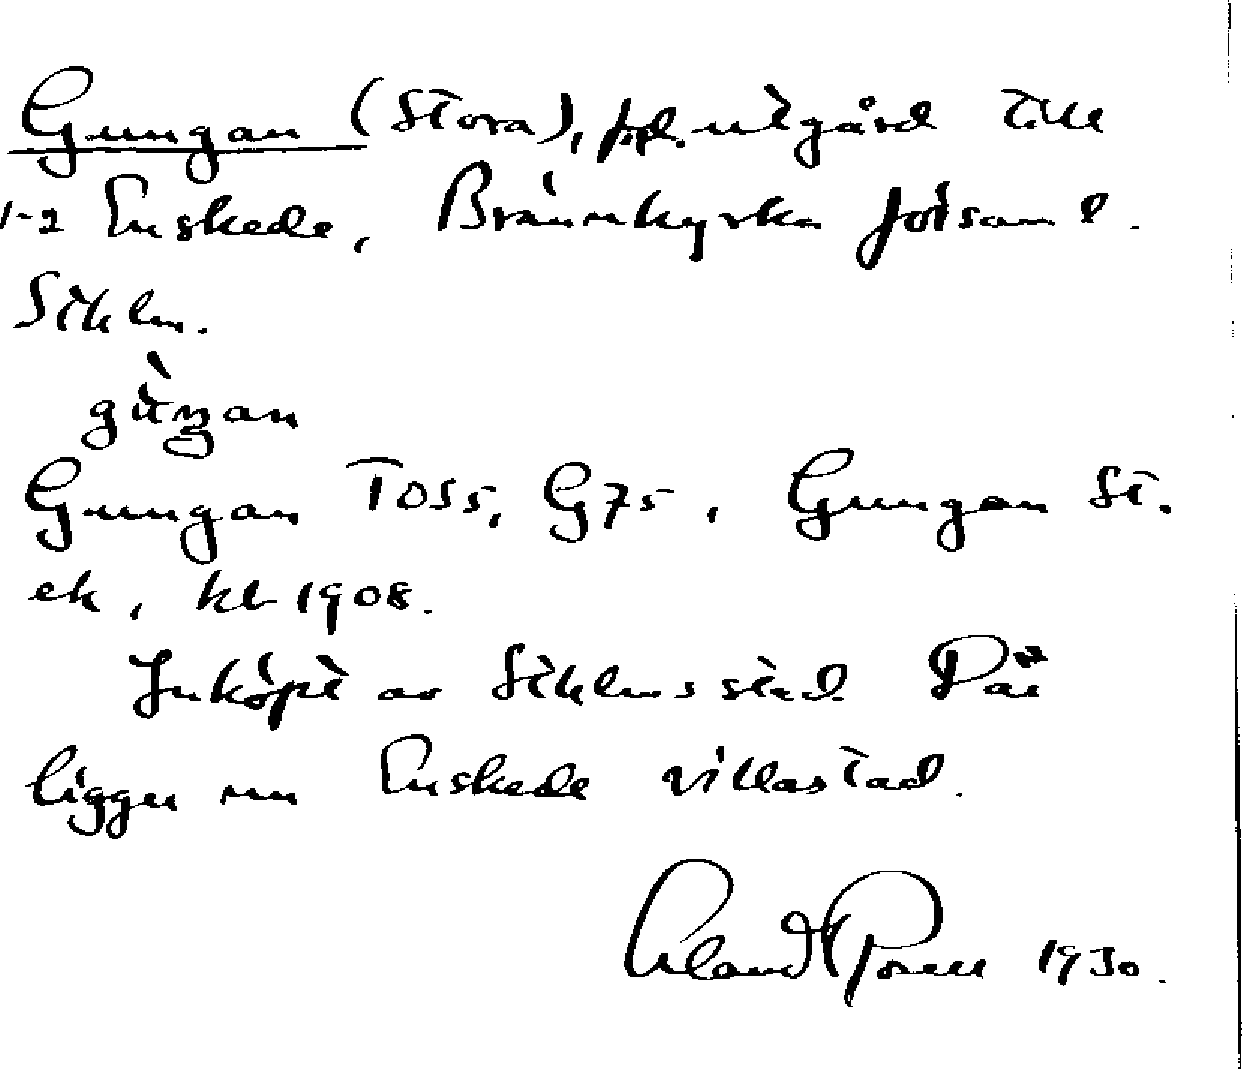 Gungan (Stora), utgård till
1-2 Enskede, Brännkyrka församl.
Sthlm.
gùŋan
Gungan T055, G75, Gungan St.
ek, kb 1908.
Inköpt av Sthlms stad. Där
ligger nu Enskede villastad.
Erland Rosell 1930.